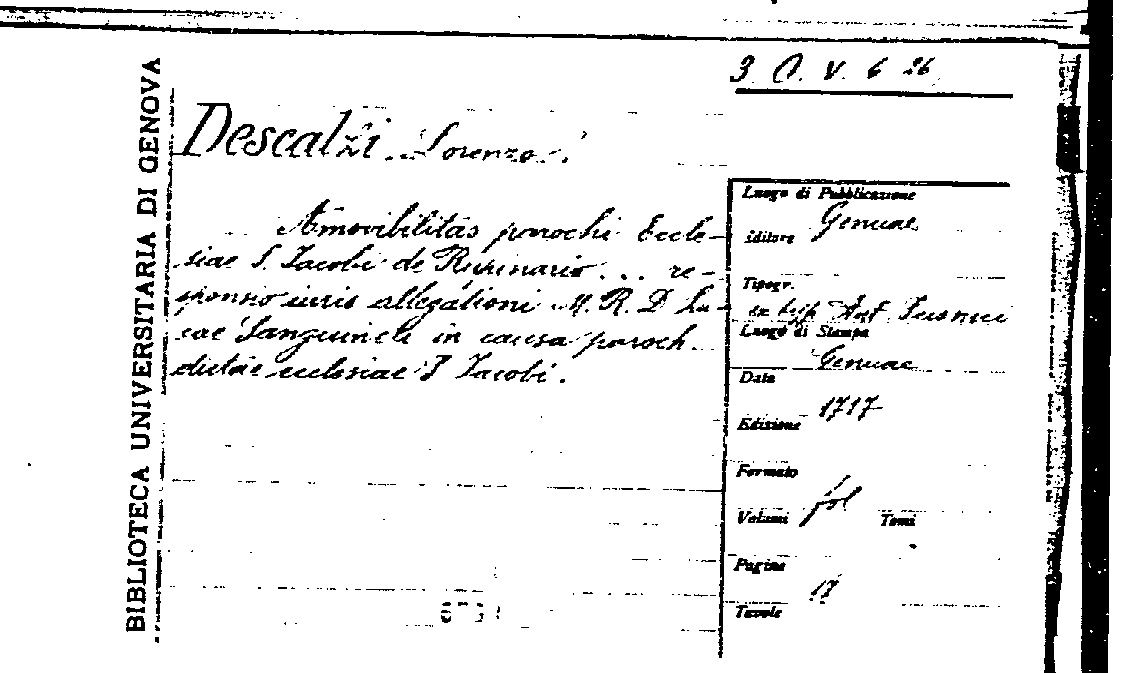 BIBLIOTECA UNIVERSITARIA DI GENOVA
3 V. 6 26
Descalzi Lorenzo
Amovibilitas parochi Eccle-
siae S. Jacobi de Rupinario ... re-
sponsio iuris allegationi M. R. D. Lu-
cae Sanguineti in causa paroch.
dictae ecclesiae S Jacobi.
Luogo di Pubblicazione
Genuae
Editore
Tipogr.
ex typ. Ant.
Luogo di Stampa
Genuae
Data
1717
Edizione
Formato
fol
Volumi Tomi
Pagine
17
Tavole